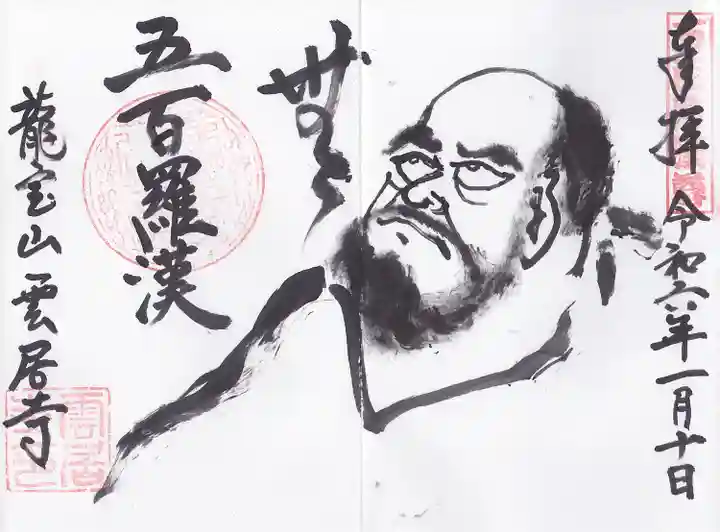 奉拝
令和六年一月十日
五百羅漢
龍宝山 雲居寺